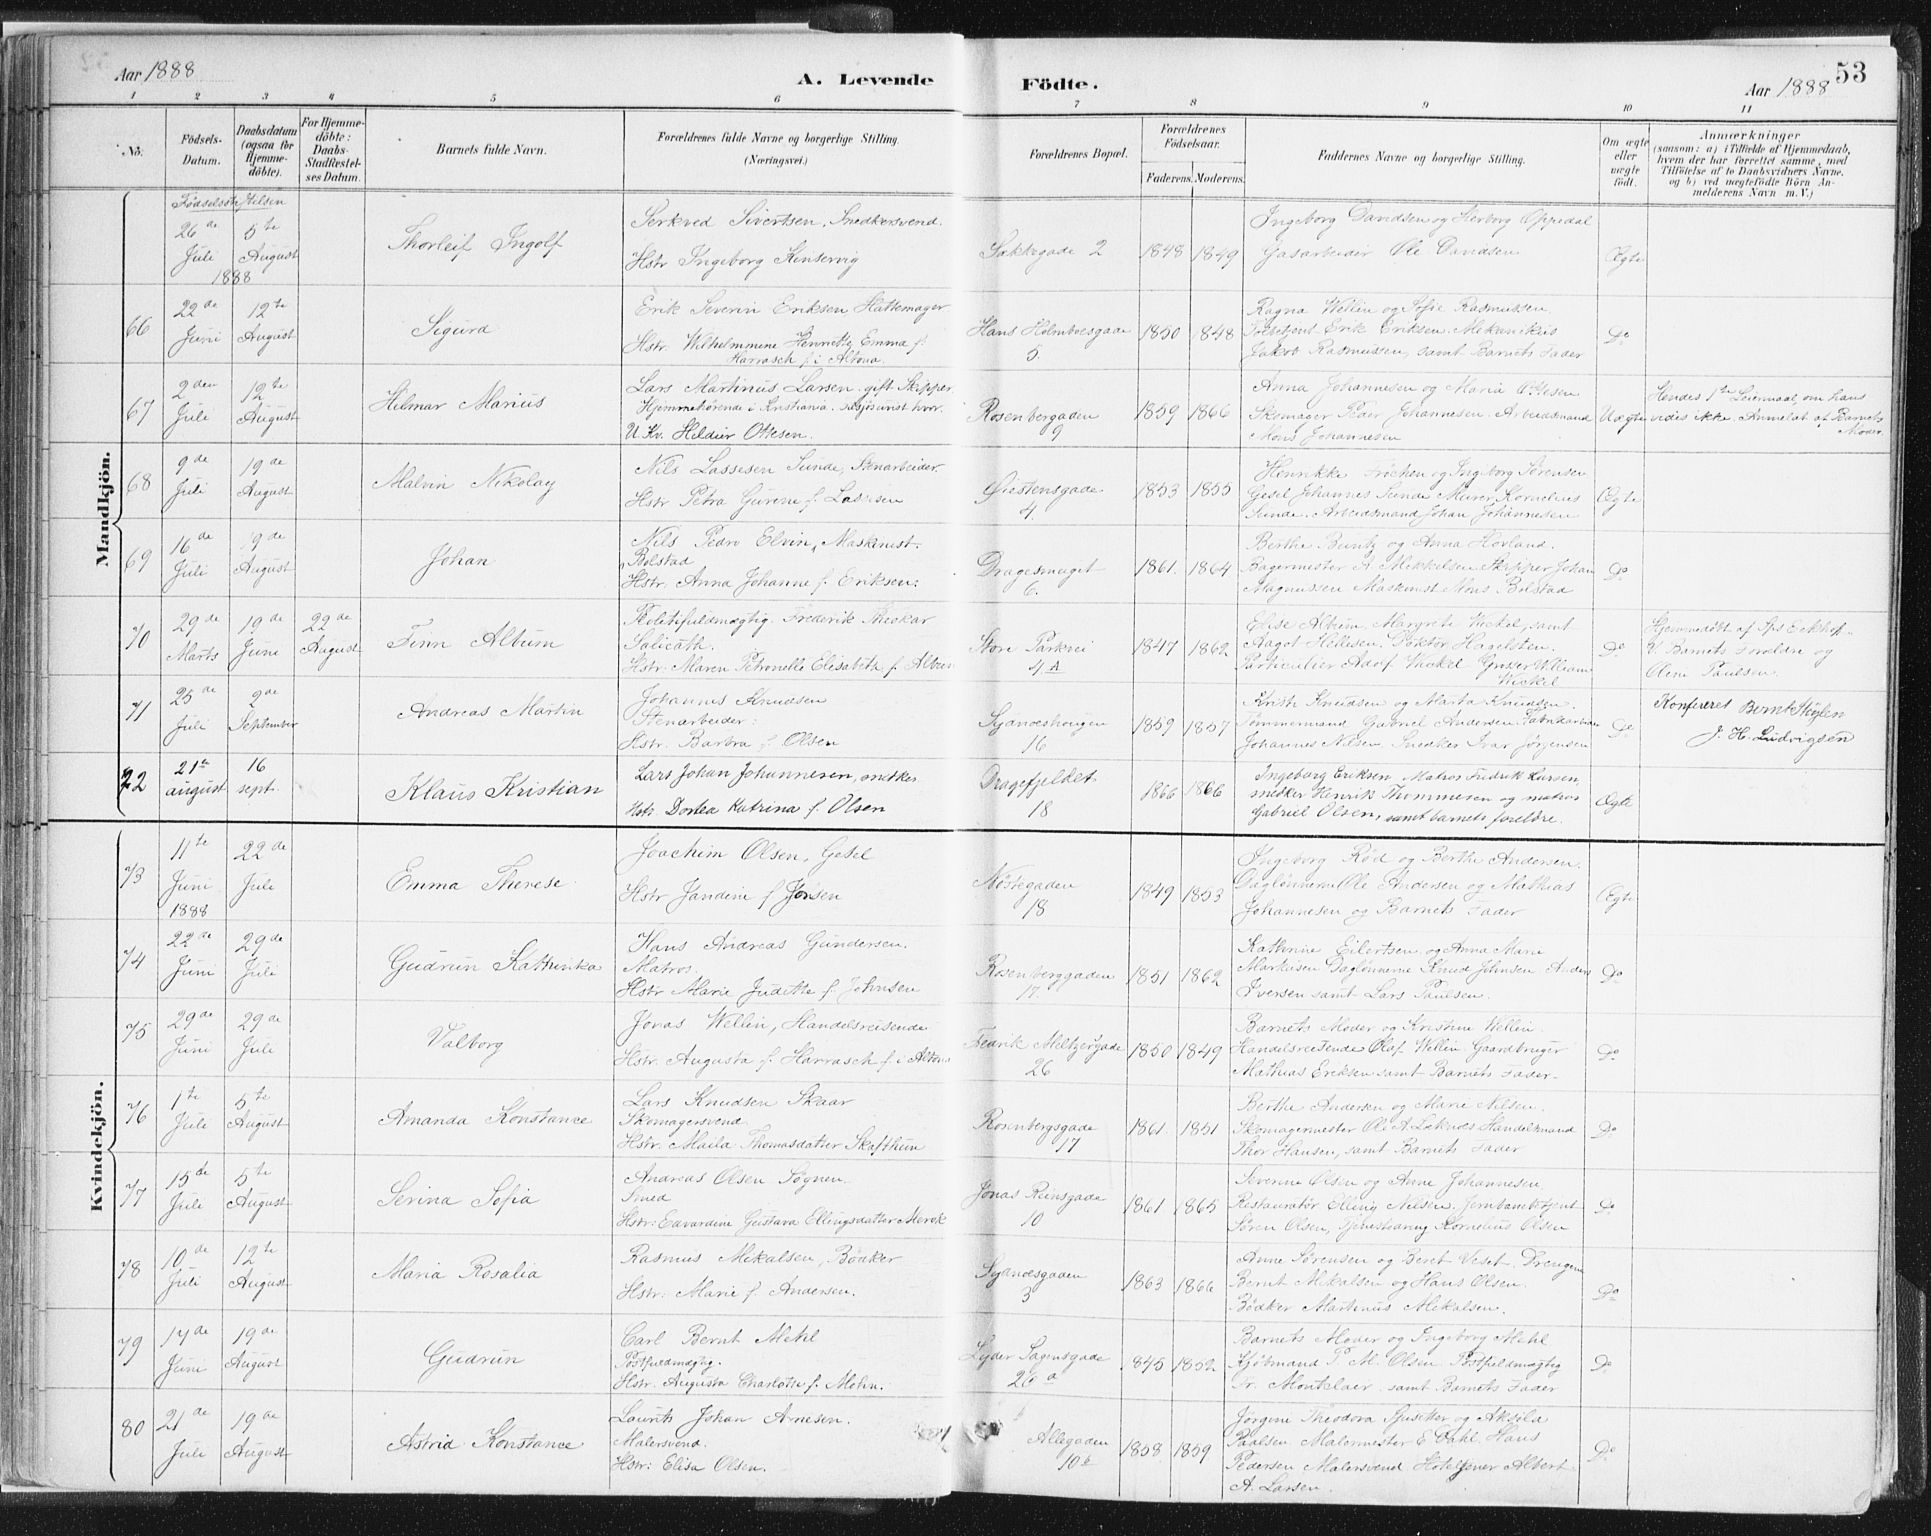 Aar 1888
A. Levende
Födte.
Aar 1888
53
1 2 3 4 5 6 7 8 9 10 11
No.
Födsels-
Datum.
Daabsdatum
(ogsaa for
Hjemme-
döbte).
For Hjemme-
döbte:
Daabs-
Stadfæstel-
ses Datum.
Barnets fulde Navn.
Forældrenes fulde Navne og borgerlige Stilling
(Næringsvei.)
Forældrenes Bopæl.
Forældrenes
Födselsaar.
Faderens. Moderens.
Faddernes Navne og borgerlige Stilling.
Om ægte
eller
uægte
födt.
Anmærkninger
(saasom: a) i Tilfælde af Hjemmedaab,
hvem der har forrettet samme, med
Tilföielse af to Daabsvidners Navne.
og b) ved uægtefödte Börn An-
melderens Navn m. V.)
Mandkjön.
26de Juli 1888
5te August
Thorleif Ingolf
Serkved Sivertsen, Snedkersvend.
Hstr Ingeborg Kinservig
Sækkegade 2
1848 1849
Ingeborg Davidsen og Oppedal
Gasarbeider Ole Davidsen
Ægte
66
22de Juni
12te August
Sigurd
Erik Severin Eriksen Hattemager
Hstr. Wilhelmmine Henriette Emma f.
Harrasch f. i Altona.
Hans Holmboesgade
5.
1850 1848
Ragna Wellin og Sofie Rasmussen.
Erik Eriksen. Mekanikus
Jakob Rasmussen, samt Barnets Fader
Do
67
2den Juli
12te August
Hilmar Marius
Lars Martinus Larsen. gift Skipper.
Hjemmehørende i Kristiania.
U. Kv. Ottesen.
Rosenbergaden
9
1859 1866
Anna Johannesen og Maria Ottesen
Skomager Peder Johannesen. Arbeidsmand
Mons Johannesen
Uægte
Hendes 1ste Leiermaal, om hans
vides ikke. Anmeldt af Barnets
Moder.
68
9de Juli
19de August
Malvin Nikolay
Nils Lassesen Sunde, Stenarbeider
Hstr Petra Gurene f. Lassen
Øistensgade
4.
1853 1855
Henrikke og Ingeborg Sørensen
Gesel Johannes Sunde Murer Kornelius
Sunde. Arbeidsmand Johan Johannesen
Ægte
69
16de Juli
19de August
Johan
Nils Pedro Elvin, Maskinist.
Bolstad
Hstr. Anna Johanne f. Eriksen.
Dragesmuget
6.
1861. 1864
Berthe Beintz og Anna Hovland.
Bagermester A. Mikkelsen Skipper Johan
Magnussen Maskinist Mons Bolstad
Do
70
29de Marts
19de Juni
22de August
Finn Album
Politifuldmægtig. Frederik
Salicath.
Hstr. Maren Petronelle Elisabeth f. Album
Store Parkvei
4.A
1847 1862
Elise Album Margrete Wickel, samt
Aagot Hellesen. Doktor Hagelsten.
Partieulier Adolf Wickel Grosser William
Wickel
Do
Hjemmedøbt af Sps Eckhof.
V. Barnets Foreldre og
Oline Paulsen.
71
25de Juli
2de September
Andreas Martin
Johannes Knudsen
Stenarbeider:
Hstr. Barbra f. Olsen
Sydnæshougen
16
1859 1857
Knudsen og Marta Knudsen.
Tømmermand Gabriel Andersen
Johannes Nilsen, Snedker Ivar Jørgensen
Do
Konfereret Bernt Støylen
J. H. Ludvigsen
72
21te august
16 sept.
Klaus Kristian
Lars Johan Johannesen, snedker
Hstr. Dortea Katrina f. Olsen
Dragefjeldet
18
1866 1866
Ingeborg Eriksen Matros Fredrik Larsen
snedker Henrik Thommesen og matros
Gabriel Olsen, samt barnets foreldre.
Ægte
Kvindekjön.
73
11te Juni 1888
22de Juli
Emma Therese
Joachim Olsen, Gesel
Hstr Jandine f. Jonsen
Nøstegaden
18
1849 1853
Ingeborg Rød og Berthe Andersen.
Daglønnerne Ole Andersen og Mathias
Johannesen og Barnets Fader
Ægte
74
22de Juni
29de Juli
Gudrun Kathinka
Hans Andreas Gundersen.
Matros.
Hstr Marie Judithe f. Johnsen
Rosenberggaden
17.
1851 1862
Kathrine Eilertsen og Anna Marie
Markusen Daglønnerne Knud Johnsen Anders
Iversen samt Lars Paulsen.
Do
75
29de Juni
29de Juli
Valborg
Jonas Wellin, Handelsreisende
Hstr. Augusta f. Harrasch f. i Altona
Fredrik Meltzersgade
26
1850 1849
Barnets Moder og Kristine Wellin.
Handelsreisende Olaf Wellin Gaardbruger
Mathias Eriksen samt Barnets Fader.
Do
76
1te Juli
5te August
Amanda Konstance
Lars Knudsen Skaar
Skomagersvend.
Hstr. Maila Thomasdatter
Rosenbergsgade
17
1861. 1851
Berthe Andersen og Marie Nilsen.
Skomagermester Ole A. Handelsmand
Thor Hansen, samt Barnets Fader
Do
77
15de Juli
5te August
Serina Sofia
Andreas Olsen Søgnen.
Smed
Hstr: Edvardine Gustava Ellingsdatter
Jonas Reinsgade
10
1861 1865
Severine Olsen og Anne Johannesen
Restauratør Elling Nilsen. Jernbanebetjent
Søren Olsen, Kornelius Olsen
Do
78
10de Juli
12te August
Maria Rosalia
Rasmus Mikalsen, Bødker
Hstr: Marie f. Andersen.
Sydnæsgaden
3
1863 1866
Anne Sørensen og Beret Viset. Drengene
Bernt Mikalsen og Hans Olsen.
Bødker Martinus Mikalsen.
Do
79
17de Juni
19de August
Gudrun
Carl Bernt Mehl
Postfuldmægtig.
Hstr. Augusta Charlotte f. Mohn.
Lyder Sagensgade
26 a
1845 1852
Barnets Moder og Ingeborg Mehl
Kjøbmand P. M. Olsen. Postfuldmægtig
Fr. Montclair samt Barnets Fader
Do
80
21de Juli
19de August
Astrid Konstance
Laurits Johan Arnesen.
Malersvend.
Hstr: Elisa Olsen.
Allegaden
10b
1858 1859
Jørgine Theodora og Aksila
Paulsen Malermester E. Dahl. Hans
Pedersen Malersvend Hoteleier Albert
A. Larsen.
Do